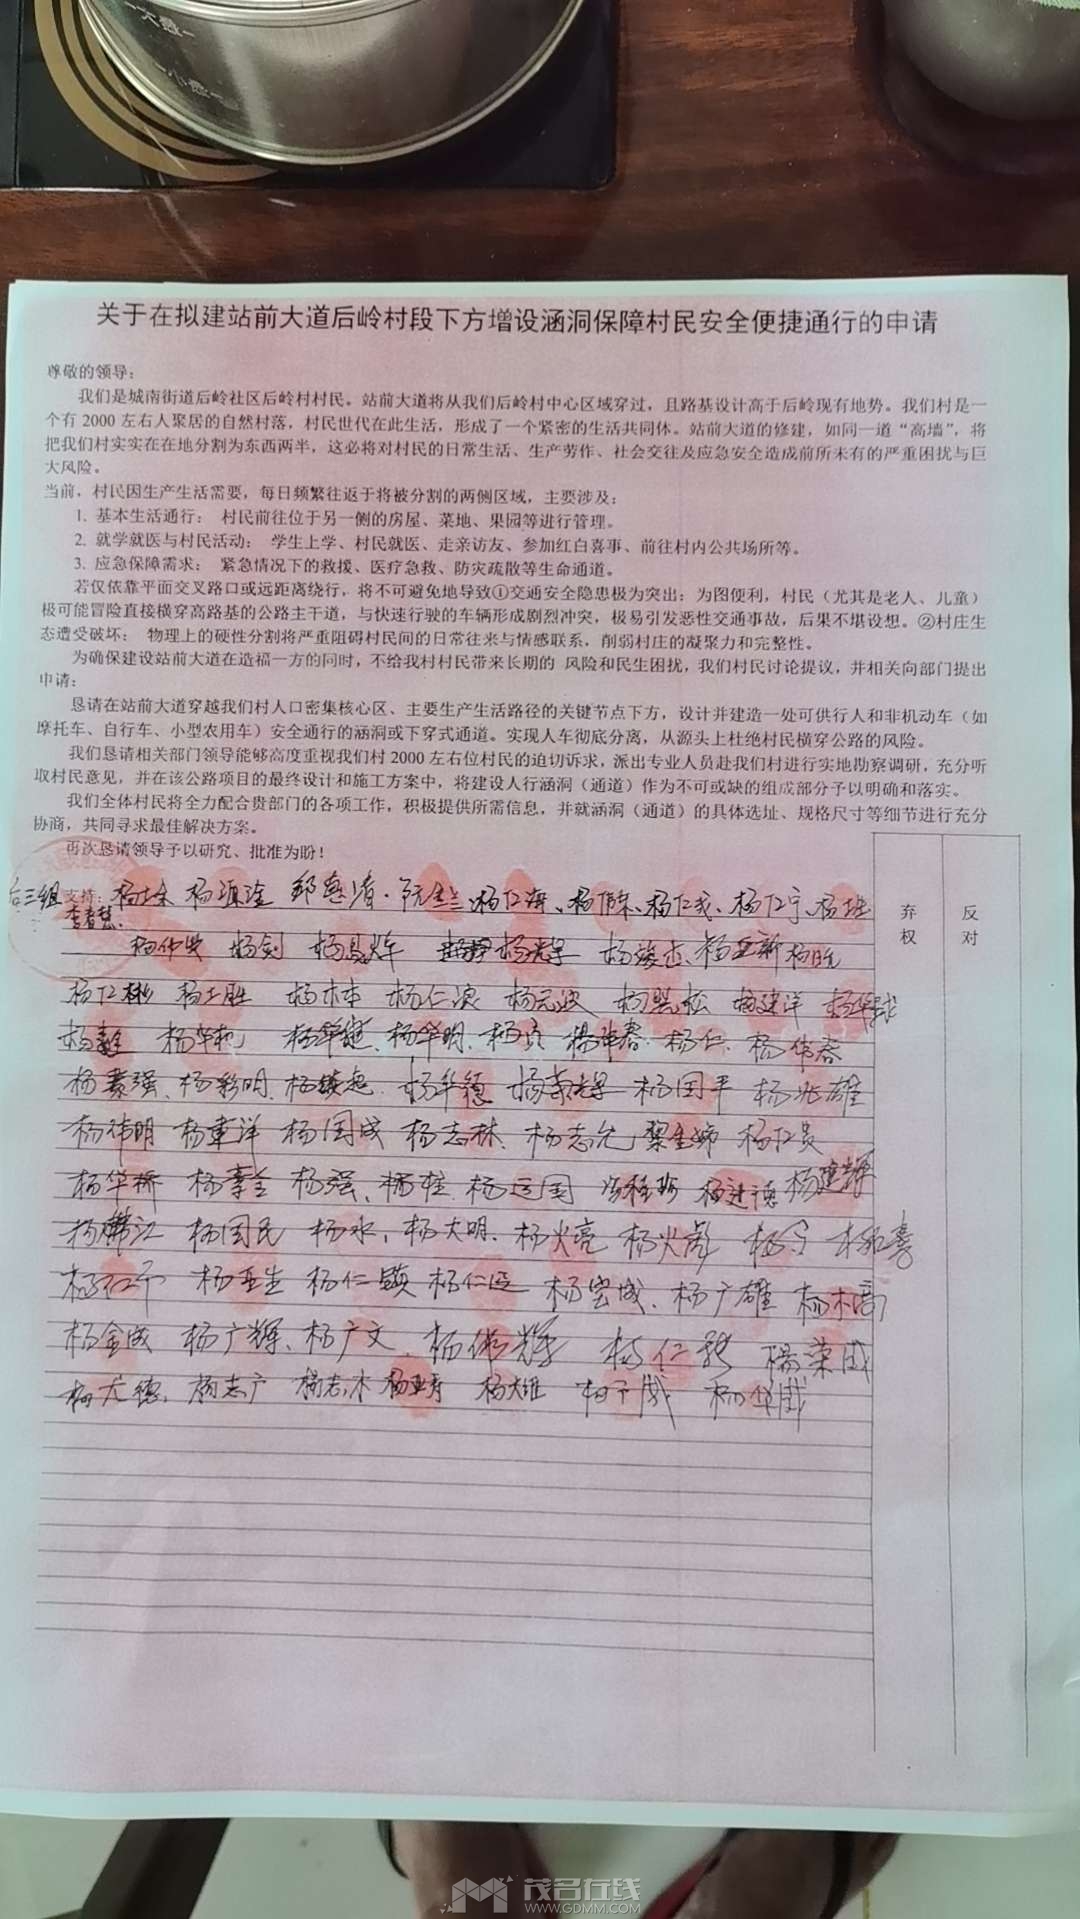 关于在拟建站前大道后岭村段下方增设涵洞保障村民安全便捷通行的申请
尊敬的领导：
我们是城南街道后岭社区后岭村村民。站前大道将从我们后岭村中心区域穿过，且路基设计高于后岭现有地势。我们村是一
个有 2000 左右人聚居的自然村落，村民世代在此生活，形成了一个紧密的生活共同体。站前大道的修建，如同一道“高墙”，将
把我们村实实在在地分割为东西两半，这必将对村民的日常生活、生产劳作、社会交往及应急安全造成前所未有的严重困扰与巨
大风险。
当前，村民因生产生活需要，每日频繁往返于将被分割的两侧区域，主要涉及：
1. 基本生活通行： 村民前往位于另一侧的房屋、菜地、果园等进行管理。
2. 就学就医与村民活动： 学生上学、村民就医、走亲访友、参加红白喜事、前往村内公共场所等。
3. 应急保障需求： 紧急情况下的救援、医疗急救、防灾疏散等生命通道。
若仅依靠平面交叉路口或远距离绕行，将不可避免地导致①交通安全隐患极为突出：为图便利，村民（尤其是老人、儿童）
极可能冒险直接横穿高路基的公路主干道，与快速行驶的车辆形成剧烈冲突，极易引发恶性交通事故，后果不堪设想。②村庄生
态遭受破坏： 物理上的硬性分割将严重阻碍村民间的日常往来与情感联系，削弱村庄的凝聚力和完整性。
为确保建设站前大道在造福一方的同时，不给我村村民带来长期的 风险和民生困扰，我们村民讨论提议，并相关向部门提出
申请：
恳请在站前大道穿越我们村人口密集核心区、主要生产生活路径的关键节点下方，设计并建造一处可供行人和非机动车（如
摩托车、自行车、小型农用车）安全通行的涵洞或下穿式通道。实现人车彻底分离，从源头上杜绝村民横穿公路的风险。
我们恳请相关部门领导能够高度重视我们村 2000 左右位村民的迫切诉求，派出专业人员赴我们村进行实地勘察调研，充分听
取村民意见，并在该公路项目的最终设计和施工方案中，将建设人行涵洞（通道）作为不可或缺的组成部分予以明确和落实。
我们全体村民将全力配合贵部门的各项工作，积极提供所需信息，并就涵洞（通道）的具体选址、规格尺寸等细节进行充分
协商，共同寻求最佳解决方案。
再次恳请领导予以研究、批准为盼！
三组 支持： 杨仁海、杨仁成、杨仁宇、
弃权
反对
杨剑
杨仁彬 杨土胜 杨木 杨仁 杨建洋
杨华明 杨仁 杨伟春
杨彩明 杨华德 杨国平 杨兆雄
杨伟明 杨国成 杨志林、杨志允
杨华桥 杨强、杨运国 杨进德 杨建辉
杨国民 杨水、杨大明、杨火亮 杨火彪
杨亚生 杨仁 杨仁 杨宏成、杨广雄 杨木高
杨金成 杨广辉、杨广文、 杨仁 杨荣成
杨志广 杨志木 杨大雄 杨华成
茂名在线
WWW.GDMM.COM